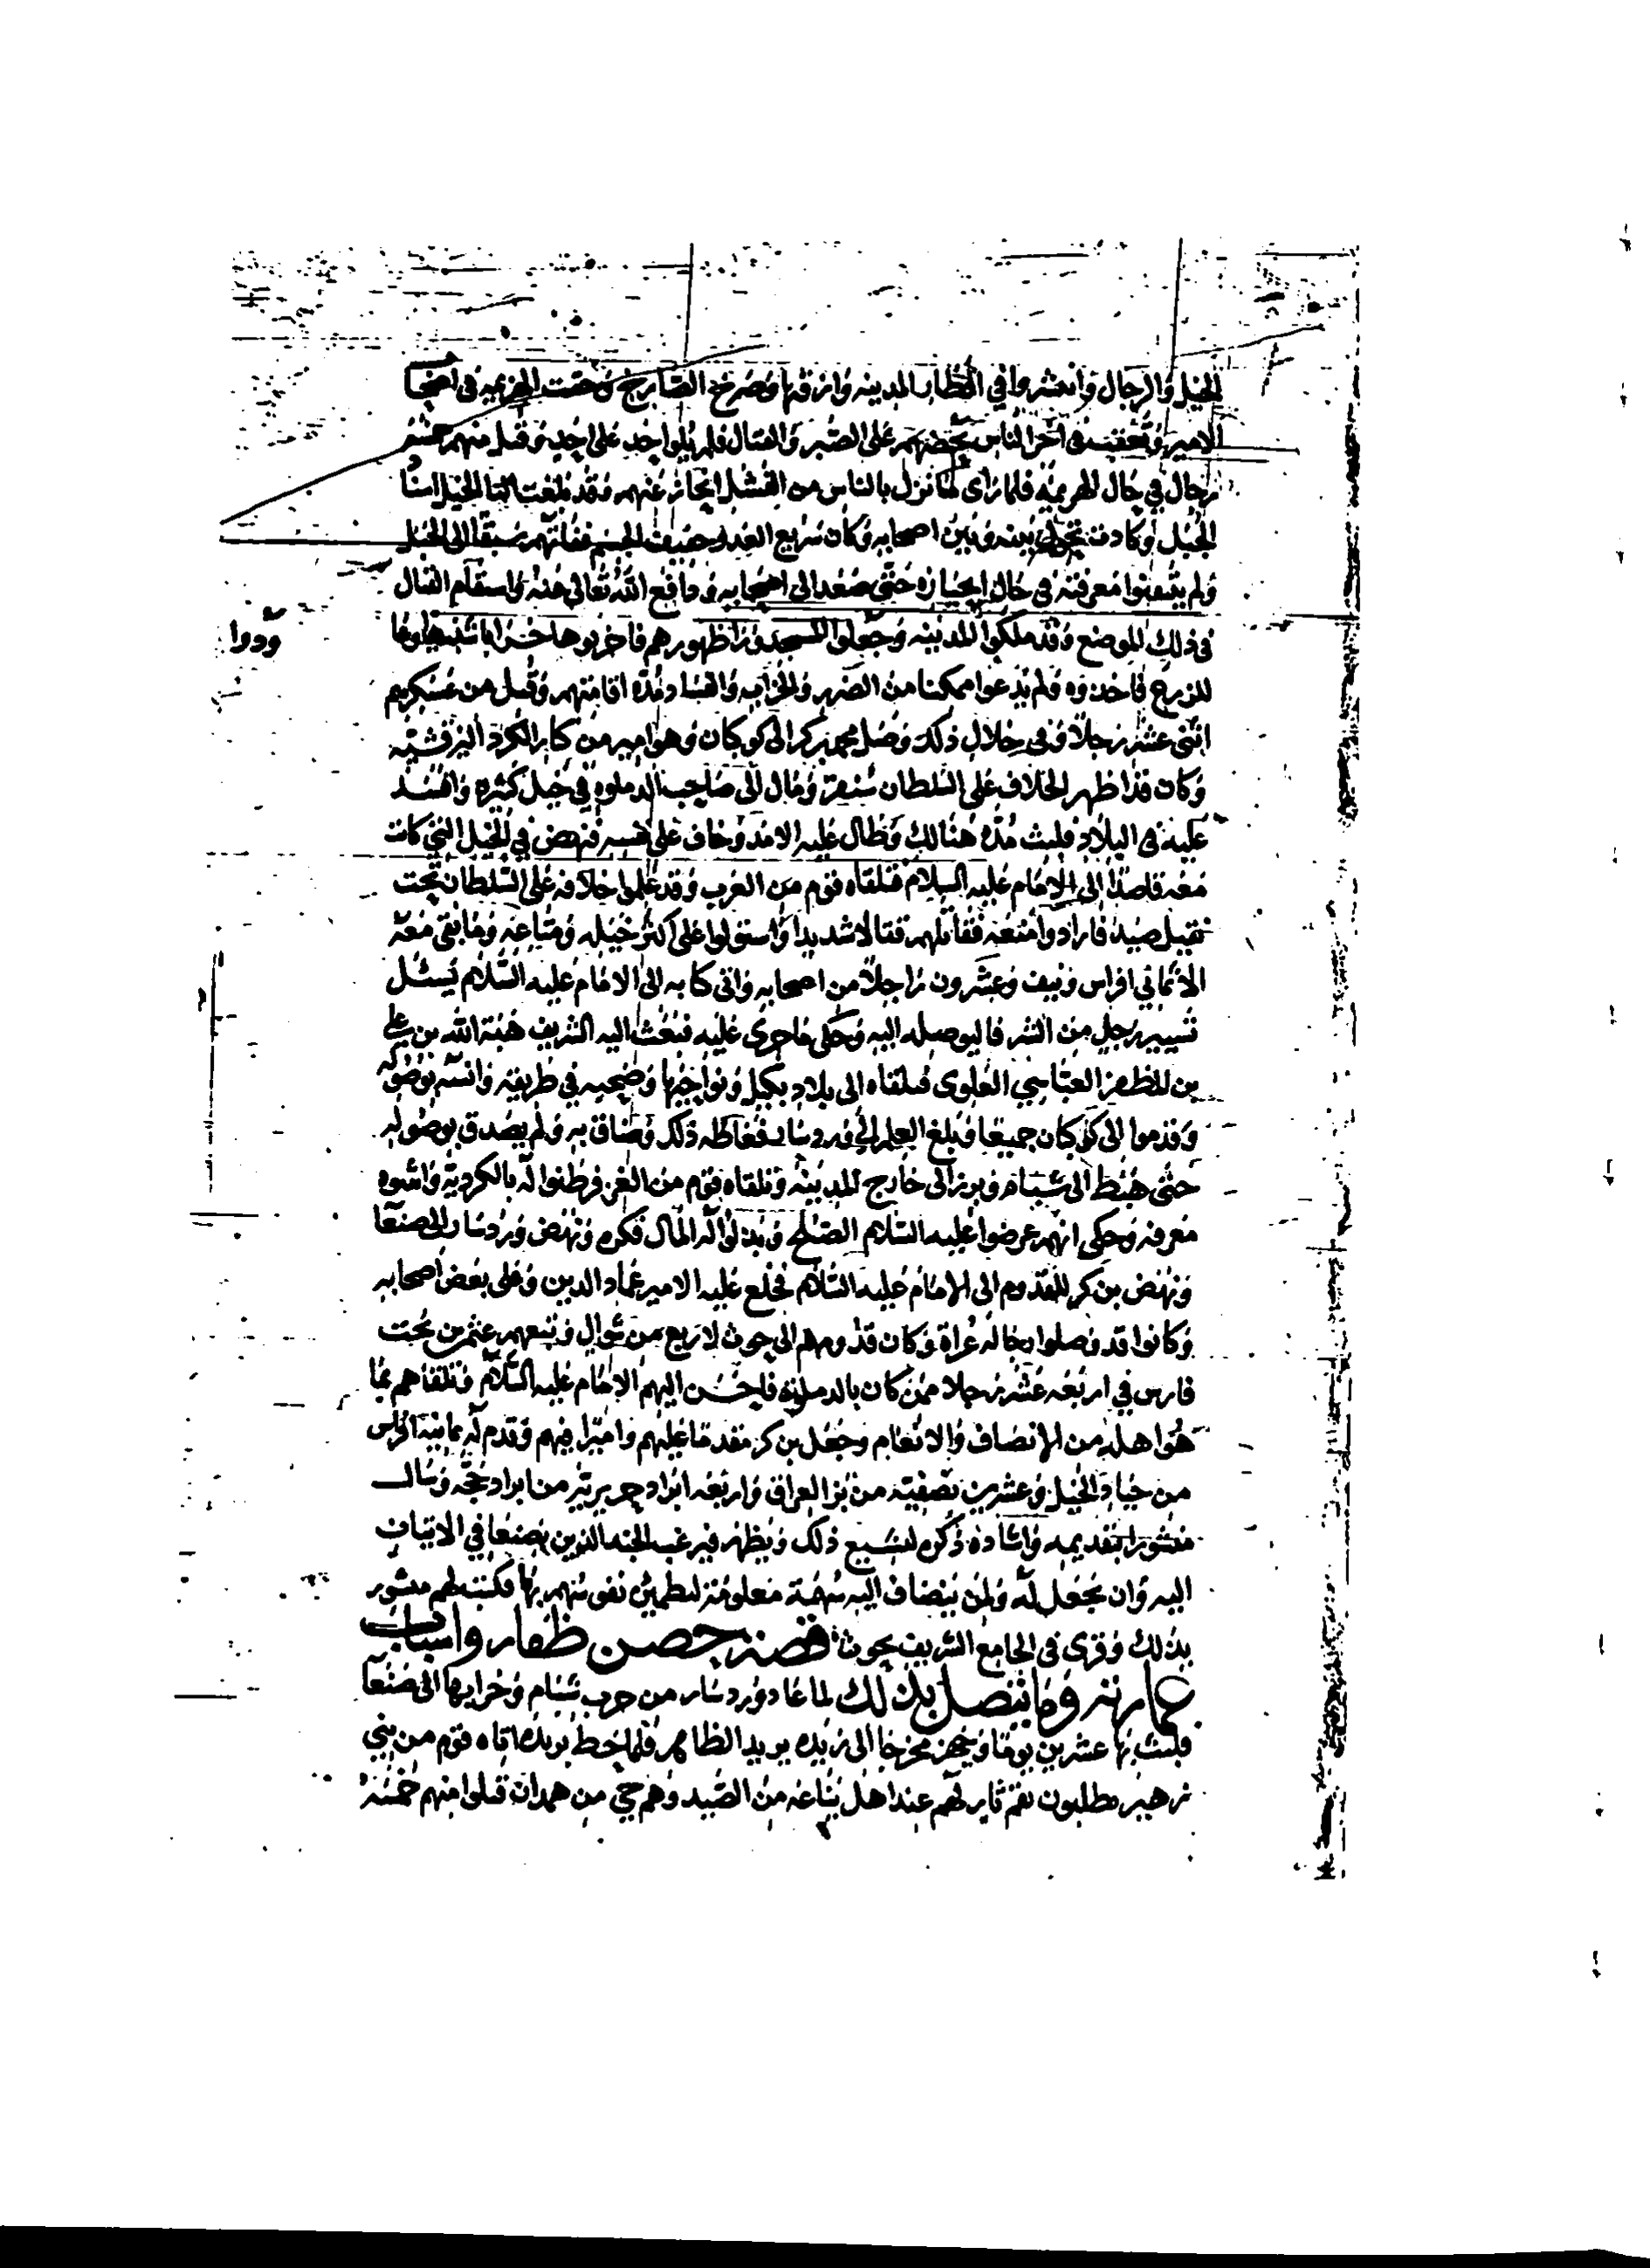 الخيل والرجال وانتشروا في اقطار المدينه وازقتها وصرخ الصارخ وحقت الهزيمه في اصحاب
الامير وتعقبه في اخر الناس يحضهم على الصبر والقتال فلم يلو احد على احد وقتل منهم خمسه
رجال في حال الهزيمه فلما راى ما نزل بالناس من الفشل انحاز عنهم وقد بلغت الخيل
الجبل وكادت تحول بينه وبين اصحابه وكان سريع العدو خفيف الجسم ففاتهم سبقا الى الجبل
ولم يتيقنوا معرفته في حال انحيازه حتى صعد الى اصحابه ودافع الله تعالى عنه واستقام القتال
في ذلك الموضع وقد ملكوا المدينه وجعلوا المسجد ورا ظهورهم فاخربوها خرابا
ودوا
للزرع فاخذوه ولم يدعوا ممكنا من الضر والخرابه والفساد مده اقامتهم وقتل من عسكرهم
اثنى عشر رجلا وفي خلال ذلك وصل محمد بن كر الى كوكبان وهو امير من كبار الكرد
وكان قد اظهر الخلاف على السلطان سنقر ومال الى صاحب الدملوه في خيل كثيره وافسد
عليه في البلاد فلبث مده هنالك وطال عليه الامد وخاف على نفسه فنهض في الخيل التي كانت
معه قاصدا الى الامام عليه السلام فتلقاه قوم من العرب وقد علموا خلافه على السلطان تحت
نقيل صيد فارادوا منعه فقاتلهم قتالا شديدا واستولوا على اكثر خيله ومتاعه وما بقي معه
الا ثماني افراس ونيف وعشرون راجلا من اصحابه واتى كتابه الى الامام عليه السلام يسئل
تسيير رجل من الشرفا ليوصله اليه وحكى ما جرى عليه فبعث اليه الشريف هبة الله بن علي
بن المظفر العباسي العلوي فتلقاه الى بلاد بكيل ونواحيها وصحبه في طريقه وانسه بوصوله
وقدموا الى كوكبان جميعا وبلغ العلم الى وردسار فغاظه ذلك وضاق به ولم يصدق بوصوله
حتى هبط الى شبام وبرز الى خارج المدينه وتلقاه قوم من الغز فرطنوا له بالكرديه
معرفه وحكى انهم عرضوا عليه السلام الصلح وبذلوا له المال فكره ونهض وردسار الى صنعا
ونهض بن كر للقدوم الى الامام عليه السلام فخلع عليه الامير عماد الدين وعلى بعض اصحابه
وكانوا قد وصلوا بحاله عراة وكان قدومهم الى حوث لاربع من شوال وتبعهم عثمر بن بخت
فارس في اربعه عشر رجلا ممن كان بالدملوه فاحسن اليهم الامام عليه السلام وتلقاهم بما
هو اهله من الانصاف والانعام وجعل بن كر مقدما عليهم واميرا فيهم وقدم له ثمانيه افراس
من جياد الخيل وعشرين تصفيه من بز العراق واربعه ابراد حريريه من ابراد وسال
منشورا بتقديمه واشادة ذكره ليشيع ذلك ويظهر فيرغب الجند الذين بصنعا في الاتيان
اليه وان يجعل له ولمن ينضاف اليه معلومه ليطمئن نفوسهم بها فكتب لهم منشور
بذلك وقرى في الجامع الشريف بحوث قصة حصن ظفار واسباب
عمارته وما يتصل بذلك لما عاد وردسار من حرب شبام وخرابها الى صنعا
فلبث بها عشرين يوما وتجهز مخرجا الى زيده يريد الظاهر فلما حط بريده اتاه قوم من بني
زهير يطلبون نقم ثار لهم عند اهل من الصيد وهم حي من همدان قتلوا منهم خمسه